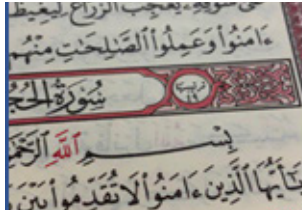 يُعْجِبُ ٱلزُّرَّاعَ لِيَغِيظَ
ءَامَنُوا۟ وَعَمِلُوا۟ ٱلصَّٰلِحَٰتِ مِنْهُم
سُورَةُ الحُجُ
بِسْمِ ٱللَّهِ ٱلرَّحْمَ
يَٰٓأَيُّهَا ٱلَّذِينَ ءَامَنُوا۟ لَا تُقَدِّمُوا۟ بَيْنَ